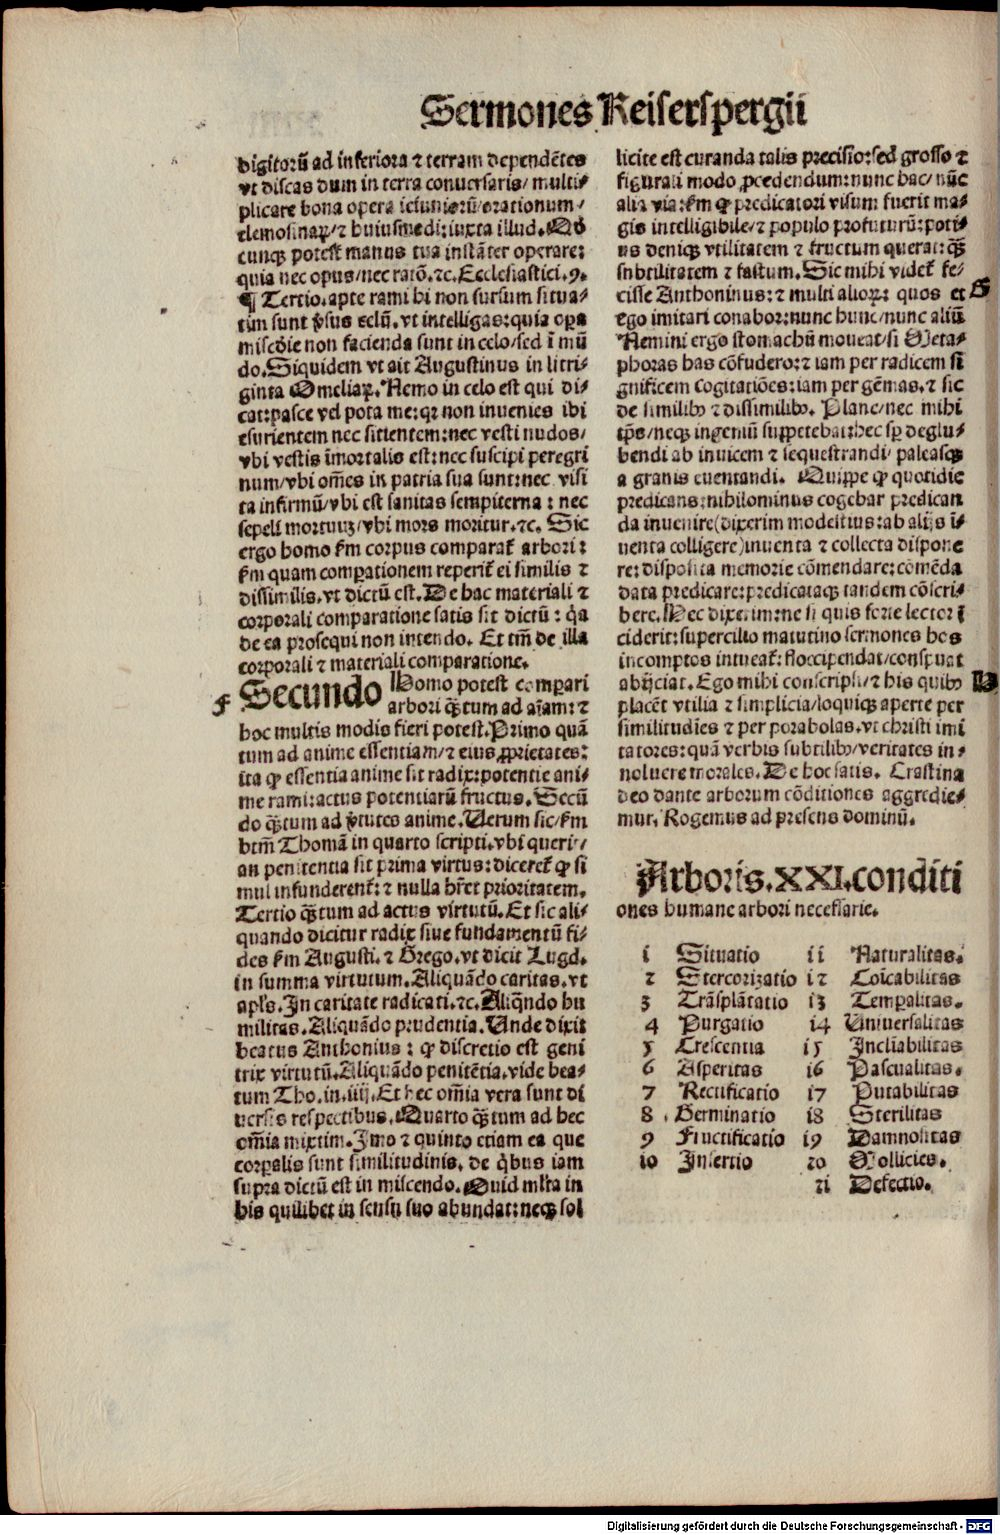 Sermones Keiserspergii
digitorū ad inferiora ⁊ terram dependētes
vt discas dum in terra conuersaris/ multi⸗
plicare bona opera ieiuniorū/orationum/
elemosinaꝝ/⁊ huiusmodi: iuxta illud. Qd
cunqꝫ potest manus tua instāter operare:
quia nec opus/nec ratō. ⁊c. Ecclesiastici .9.
¶ Tertio. apte rami hi non sursum situa⸗
tim sunt ꝟsus celū. vt intelligas: quia oꝑa
miscōie non facienda sunt in celo/sed ī mū
do. Siquidem vt ait Augustinus in litri⸗
ginta Omeliaꝝ. Nemo in celo est qui di⸗
cat: pasce vel pota me: qꝛ non inuenies ibi
esurientem nec sitientem: nec vesti nudos/
vbi vestis īmortalis est: nec suscipi peregri
num/vbi om̄es in patria sua sunt: nec visi
ta infirmū/vbi est sanitas sempiterna: nec
sepeli mortuꝫ/vbi mors moritur. ⁊c. Sic
ergo homo km̄ corpus comparat̄ arbori:
km̄ quam comꝑationem reperit̄ ei similis ⁊
dissimilis. vt dictū est. De hac materiali ⁊
corporali comparatione satis sit dictū: q̄a
de ea prosequi non intendo. Et tm̄ de illa
corporali ⁊ materiali comparatione.
F Secundo Homo potest comꝑari
arbori qꝫ̄tum ad aīam: ⁊
hoc multis modis fieri potest. Primo quā
tum ad anime essentiam/⁊ eius ꝓprietates:
ita ꝙ essentia anime sit radix: potentie ani⸗
me rami: actus potentiarū fructus. Secū
do qꝫ̄tum ad ꝟtutes anime. Verum sic/km̄
btm̄ Thomā in quarto scripti. vbi querit/
an penitentia sit prima virtus: diceret̄ ꝙ si
mul infunderent̄: ⁊ nulla hr̄et prioritatem.
Tertio qꝫ̄tum ad actus virtutū. Et sic ali⸗
quando dicitur radix siue fundamentū fi⸗
des km̄ Augusti. ⁊ Grego. vt dicit Lugd.
in summa virtutum. Aliquādo caritas. vt
apl̄s. In caritate radicati. ⁊c. Aliqn̄do hu
militas. Aliquādo prudentia. Unde dixit
beatus Anthonius: ꝙ discretio est geni
trix virtutū. Aliquādo penitētia. vide bea⸗
tum Tho. in .iiij. Et hec om̄ia vera sunt di
uersis respectibus. Quarto qꝫ̄tum ad hec
om̄ia mixtim. Imo ⁊ quinto etiam ea que
corꝑalis sunt similitudinis. de q̄bus iam
supra dictū est in miscendo. Quid ml̄ta in
his quilibet in sensu suo abundat: neqꝫ sol
licite est curanda talis precisio: sed grosso ⁊
figurali modo ꝓcedendum: nunc hac/nūc
alia via: km̄ ꝙ predicatori visum fuerit ma⸗
gis intelligibile/⁊ populo profuturū: poti⸗
us deniqꝫ vtilitatem ⁊ fructum querat: qꝫ̄
subtilitatem ⁊ fastum. Sic mihi videt̄ fe⸗
cisse Anthoninus: ⁊ multi alioꝝ: quos et G
ego imitari conabor: nunc hunc/nunc aliū
Nemini ergo stomachū moueat/si Meta⸗
phoras has cōfudero: ⁊ iam per radicem si
gnificem cogitatiōes: iam per gēmas. ⁊ sic
de similibꝫ ⁊ dissimilibꝫ. Plane/nec mihi
tp̄s/neqꝫ ingeniū suꝑpetebat: hec sꝑ deglu⸗
bendi ab inuicem ⁊ sequestrandi/ paleasqꝫ
a granis euentandi. Quippe ꝙ quotidie
predicans: nihilominus cogebar predican
da inuenire (dixerim modestius: ab alijs i⸗
nuenta colligere) inuenta ⁊ collecta dispone
re: disposita memorie cōmendare: cōmēda
data predicare: predicataqꝫ tandem cōscri⸗
bere. Hec dixerim: ne si quis forte lector ī
ciderit: supercilio matutino sermones hos
incomptos intueat̄: floccipendat/conspuat
abijciat. Ego mihi conscripsi/⁊ his quibꝫ H
placēt vtilia ⁊ simplicia/loquiqꝫ aperte per
similitudīes ⁊ per parabolas. vt christi imi
tatores: quā verbis subtilibꝫ/veritates in⸗
noluere morales. De hoc satis. Crastina
deo dante arborum cōditiones aggredie⸗
mur. Rogemus ad presens dominū.
Arboris. XXI. conditi
ones humane arbori necessarie.
1 Situatio 11 Naturalitas.
2 Stercorizatio 12 Coīcabilitas
3 Trāsplātatio 13 Temꝑalitas.
4 Purgatio 14 Uniuersalitas
5 Crescentia 15 Inclīabilitas
6 Asperitas 16 Pascualitas.
7 Rectificatio 17 Putabilitas
8 Germinatio 18 Sterilitas
9 Fructificatio 19 Damnositas
10 Insertio 20 Mollicies.
21 Defectio.
Digitalisierung gefördert durch die Deutsche Forschungsgemeinschaft - DFG